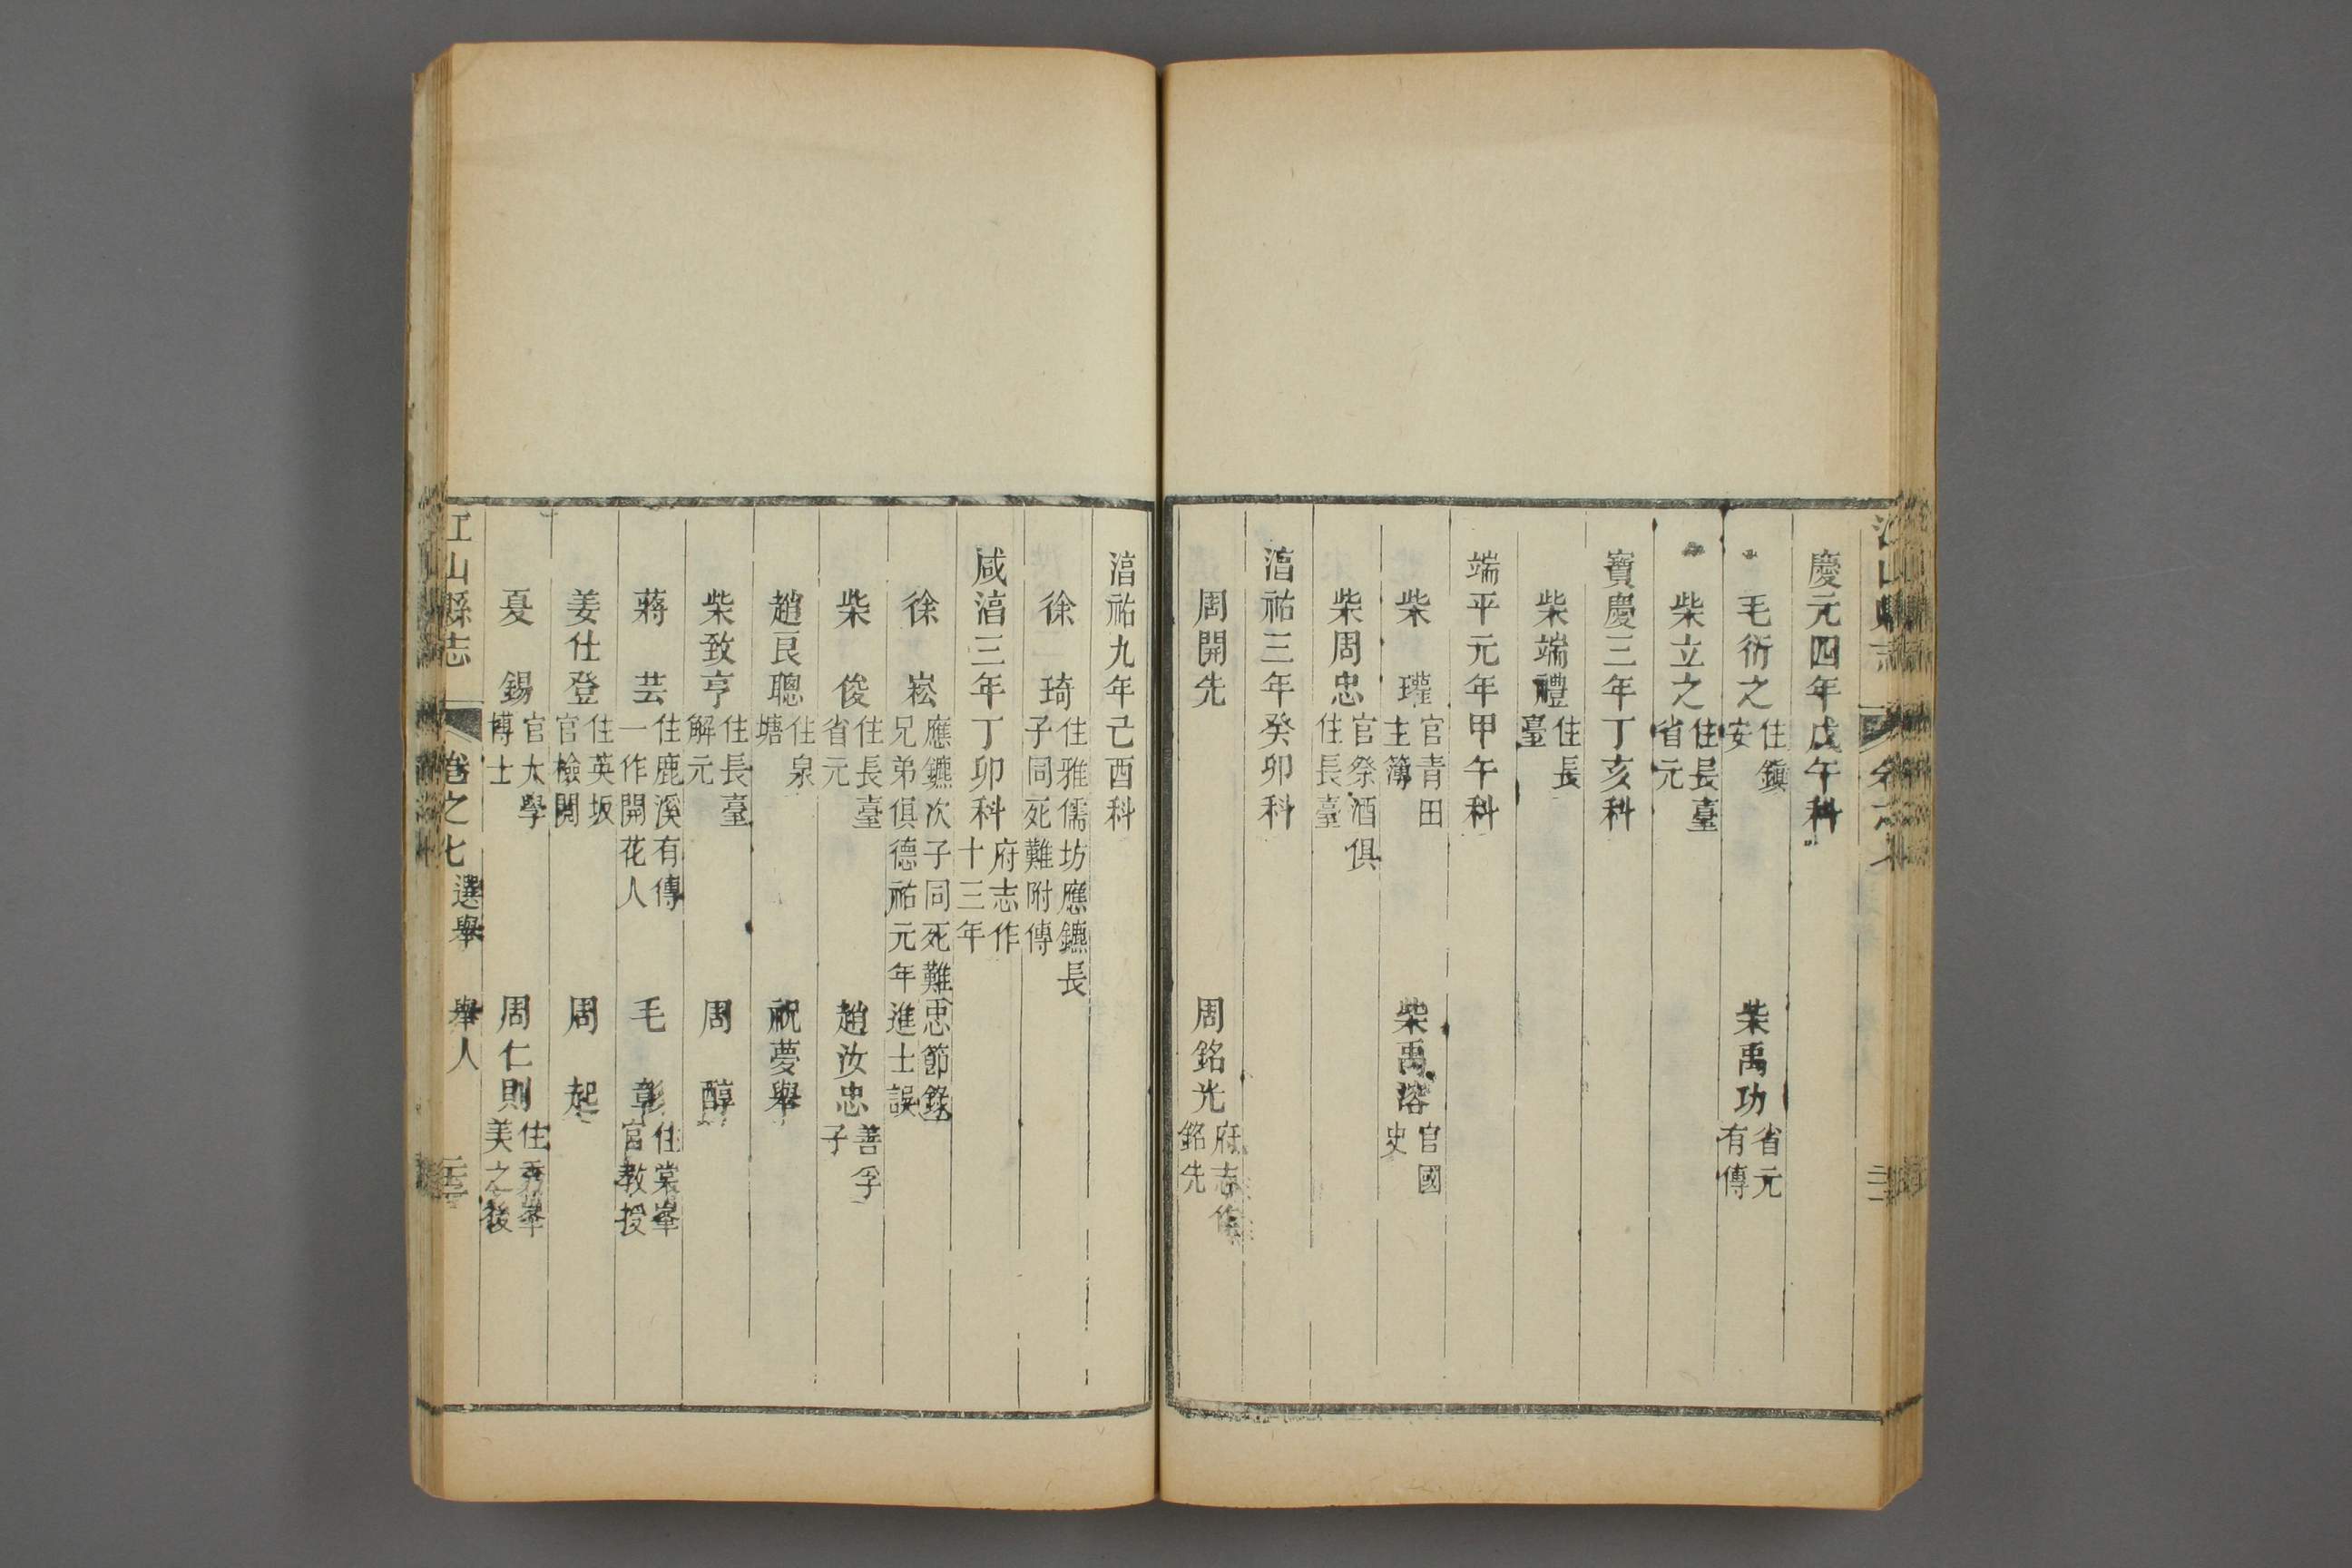 慶元四年戊午科
毛衍之 住鎮安 柴禹功 省元有傳
柴立之 住長臺省元
寶慶三年丁亥科
柴端禮 住長臺
端平元年甲午科
柴瓘 官青田主簿 柴禹溶 官國史
柴周忠 官祭酒俱住長臺
湻祐三年癸卯科
周開先 周銘光 府志作銘先
湻祐九年己酉科
徐琦 住雅儒坊應鑣長子同死難附傳
咸湻三年丁卯科 府志作十三年
徐崧 應鑣次子同死難忠節錄兄弟俱德祐元年進士誤
柴俊 住長臺省元 趙汝忠 善孚子
趙良聰 住泉塘 祝夢舉
柴致亨 住長臺解元 周醇
蔣芸 住鹿溪有傳一作開花人 毛彰 住棠峯官教授
姜仕登 住英坂官檢閱 周起
夏錫 官太學博士 周仁則 住秀峯美之後
江山縣志 卷之七 選舉 舉人